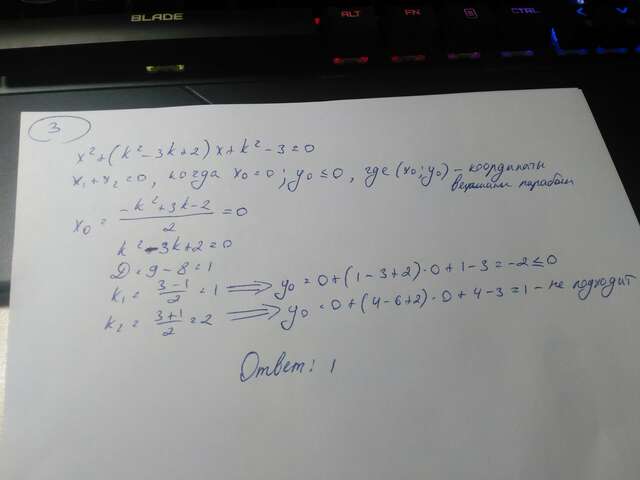 BLADE
ALT FN CTRL
3
x² + (k² - 3k + 2) x + k² - 3 = 0
x₁ + x₂ = 0, когда x₀ = 0; y₀ ≤ 0, где (x₀; y₀) - координаты
вершины параболы
x₀ = (-k² + 3k - 2)/2 = 0
k² - 3k + 2 = 0
D = 9 - 8 = 1
k₁ = (3 - 1)/2 = 1 ⟹ y₀ = 0 + (1 - 3 + 2) · 0 + 1 - 3 = -2 ≤ 0
k₂ = (3 + 1)/2 = 2 ⟹ y₀ = 0 + (4 - 6 + 2) · 0 + 4 - 3 = 1 - не подходит
Ответ: 1